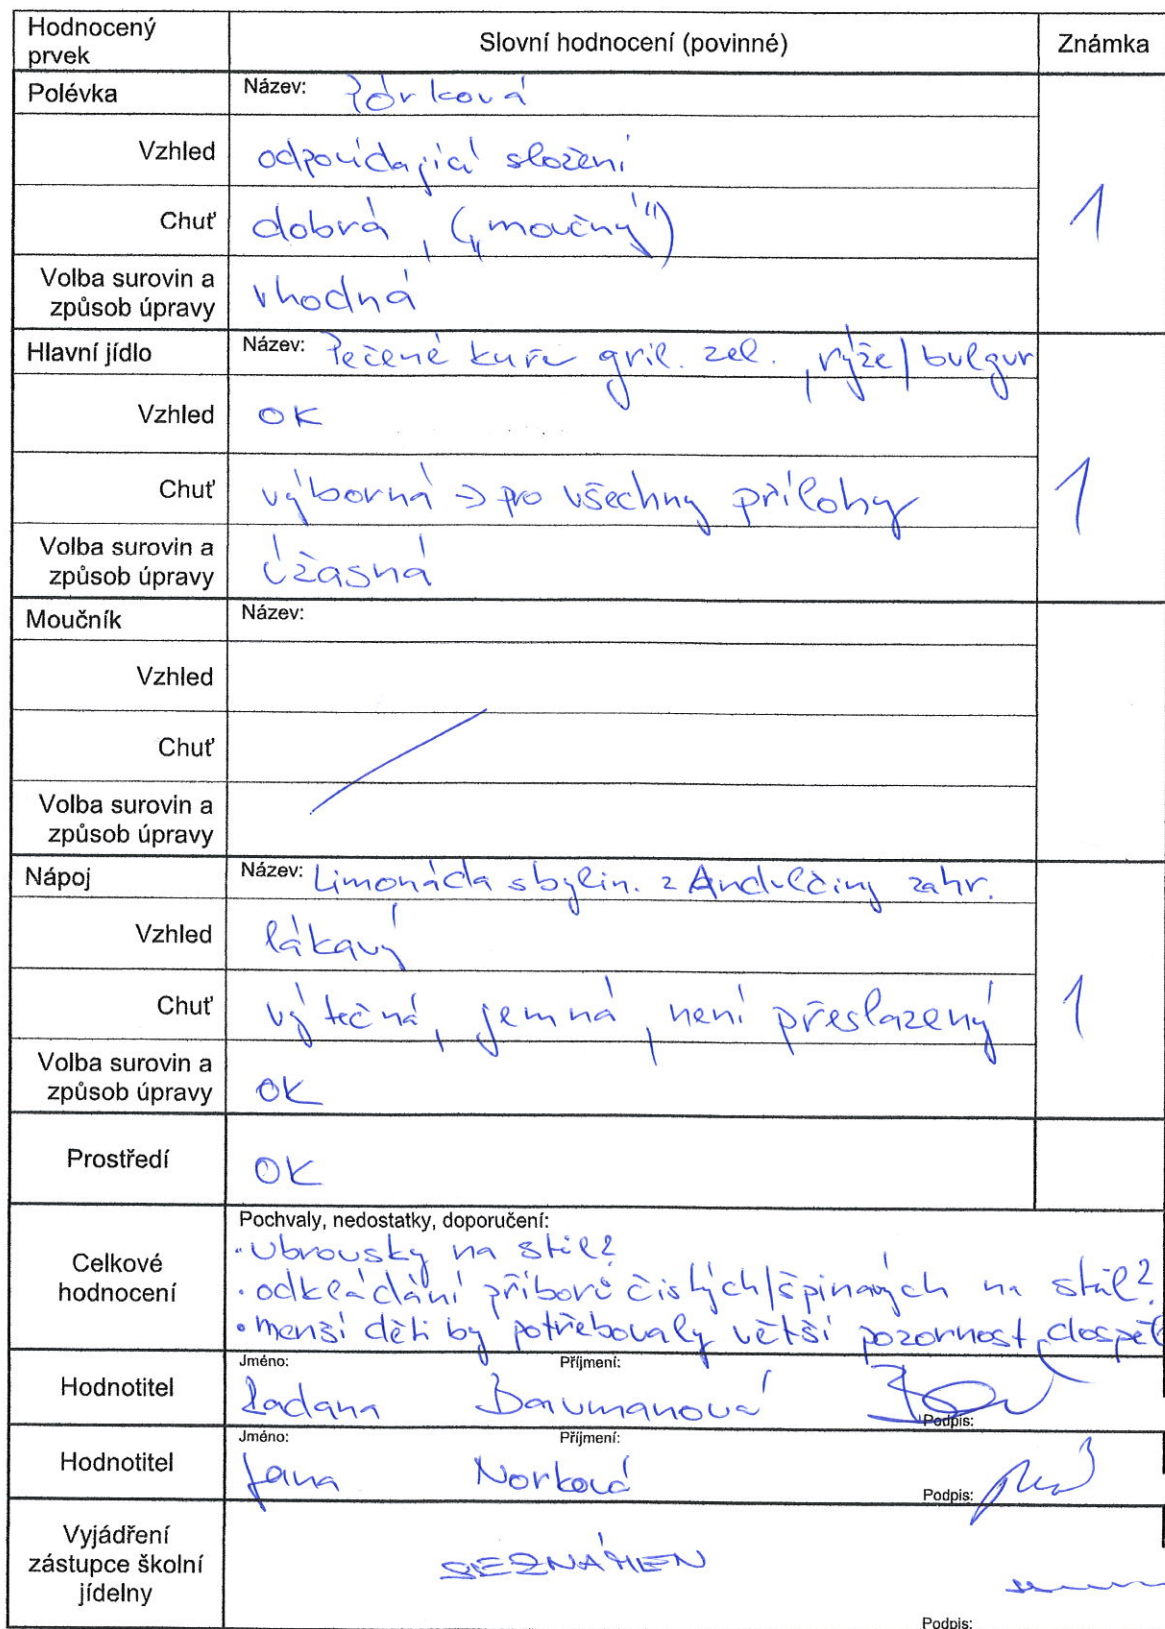 Hodnocený prvek Slovní hodnocení (povinné) Známka
Polévka Název: Pórková
Vzhled odpovídající složení
Chuť dobrá, („moučný") 1
Volba surovin a způsob úpravy vhodná
Hlavní jídlo Název: Pečené kuře gril. zel., rýže/bulgur
Vzhled OK
Chuť výborná → pro všechny přílohy 1
Volba surovin a způsob úpravy úžasná
Moučník Název:
Vzhled
Chuť
Volba surovin a způsob úpravy
Nápoj Název: Limonáda s bylin. z Andulčiny zahr.
Vzhled lákavý
Chuť výtečná, jemná, není přeslazený 1
Volba surovin a způsob úpravy OK
Prostředí OK
Celkové hodnocení Pochvaly, nedostatky, doporučení:
• Ubrousky na stůl?
• odkládání příborů čistých/špinavých na stůl?
• menší děti by potřebovaly větší pozornost dospěl
Hodnotitel Jméno: Radana Příjmení: Baumanová Podpis:
Hodnotitel Jméno: Jana Příjmení: Norková Podpis:
Vyjádření zástupce školní jídelny SEZNÁMEN
Podpis: